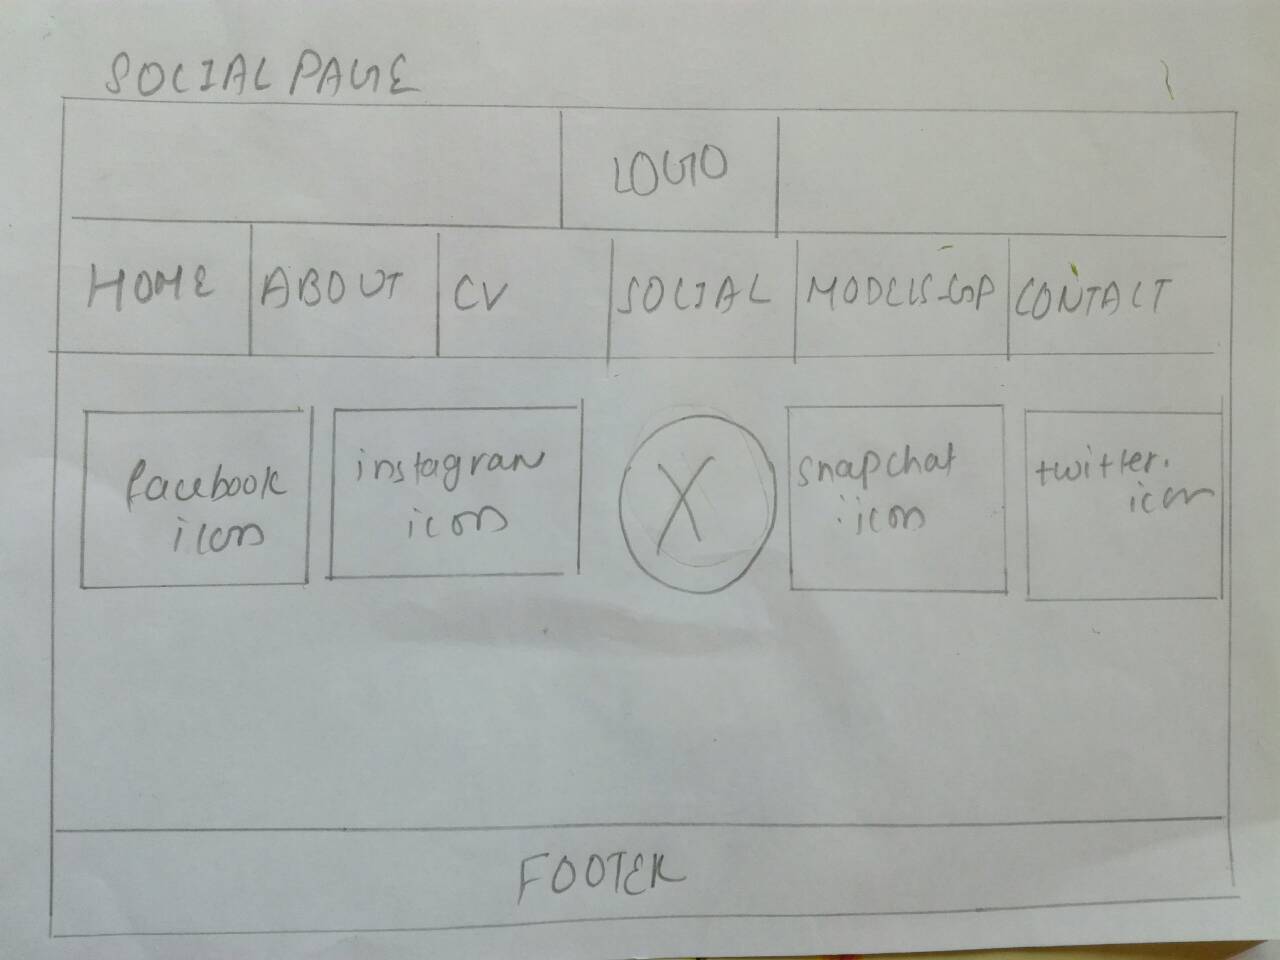 SOCIAL PAGE
LOGO
HOME ABOUT CV SOCIAL CONTACT
facebook
icon
instagran
icon
X
snapchat
icon
twitter.
icon
FOOTER